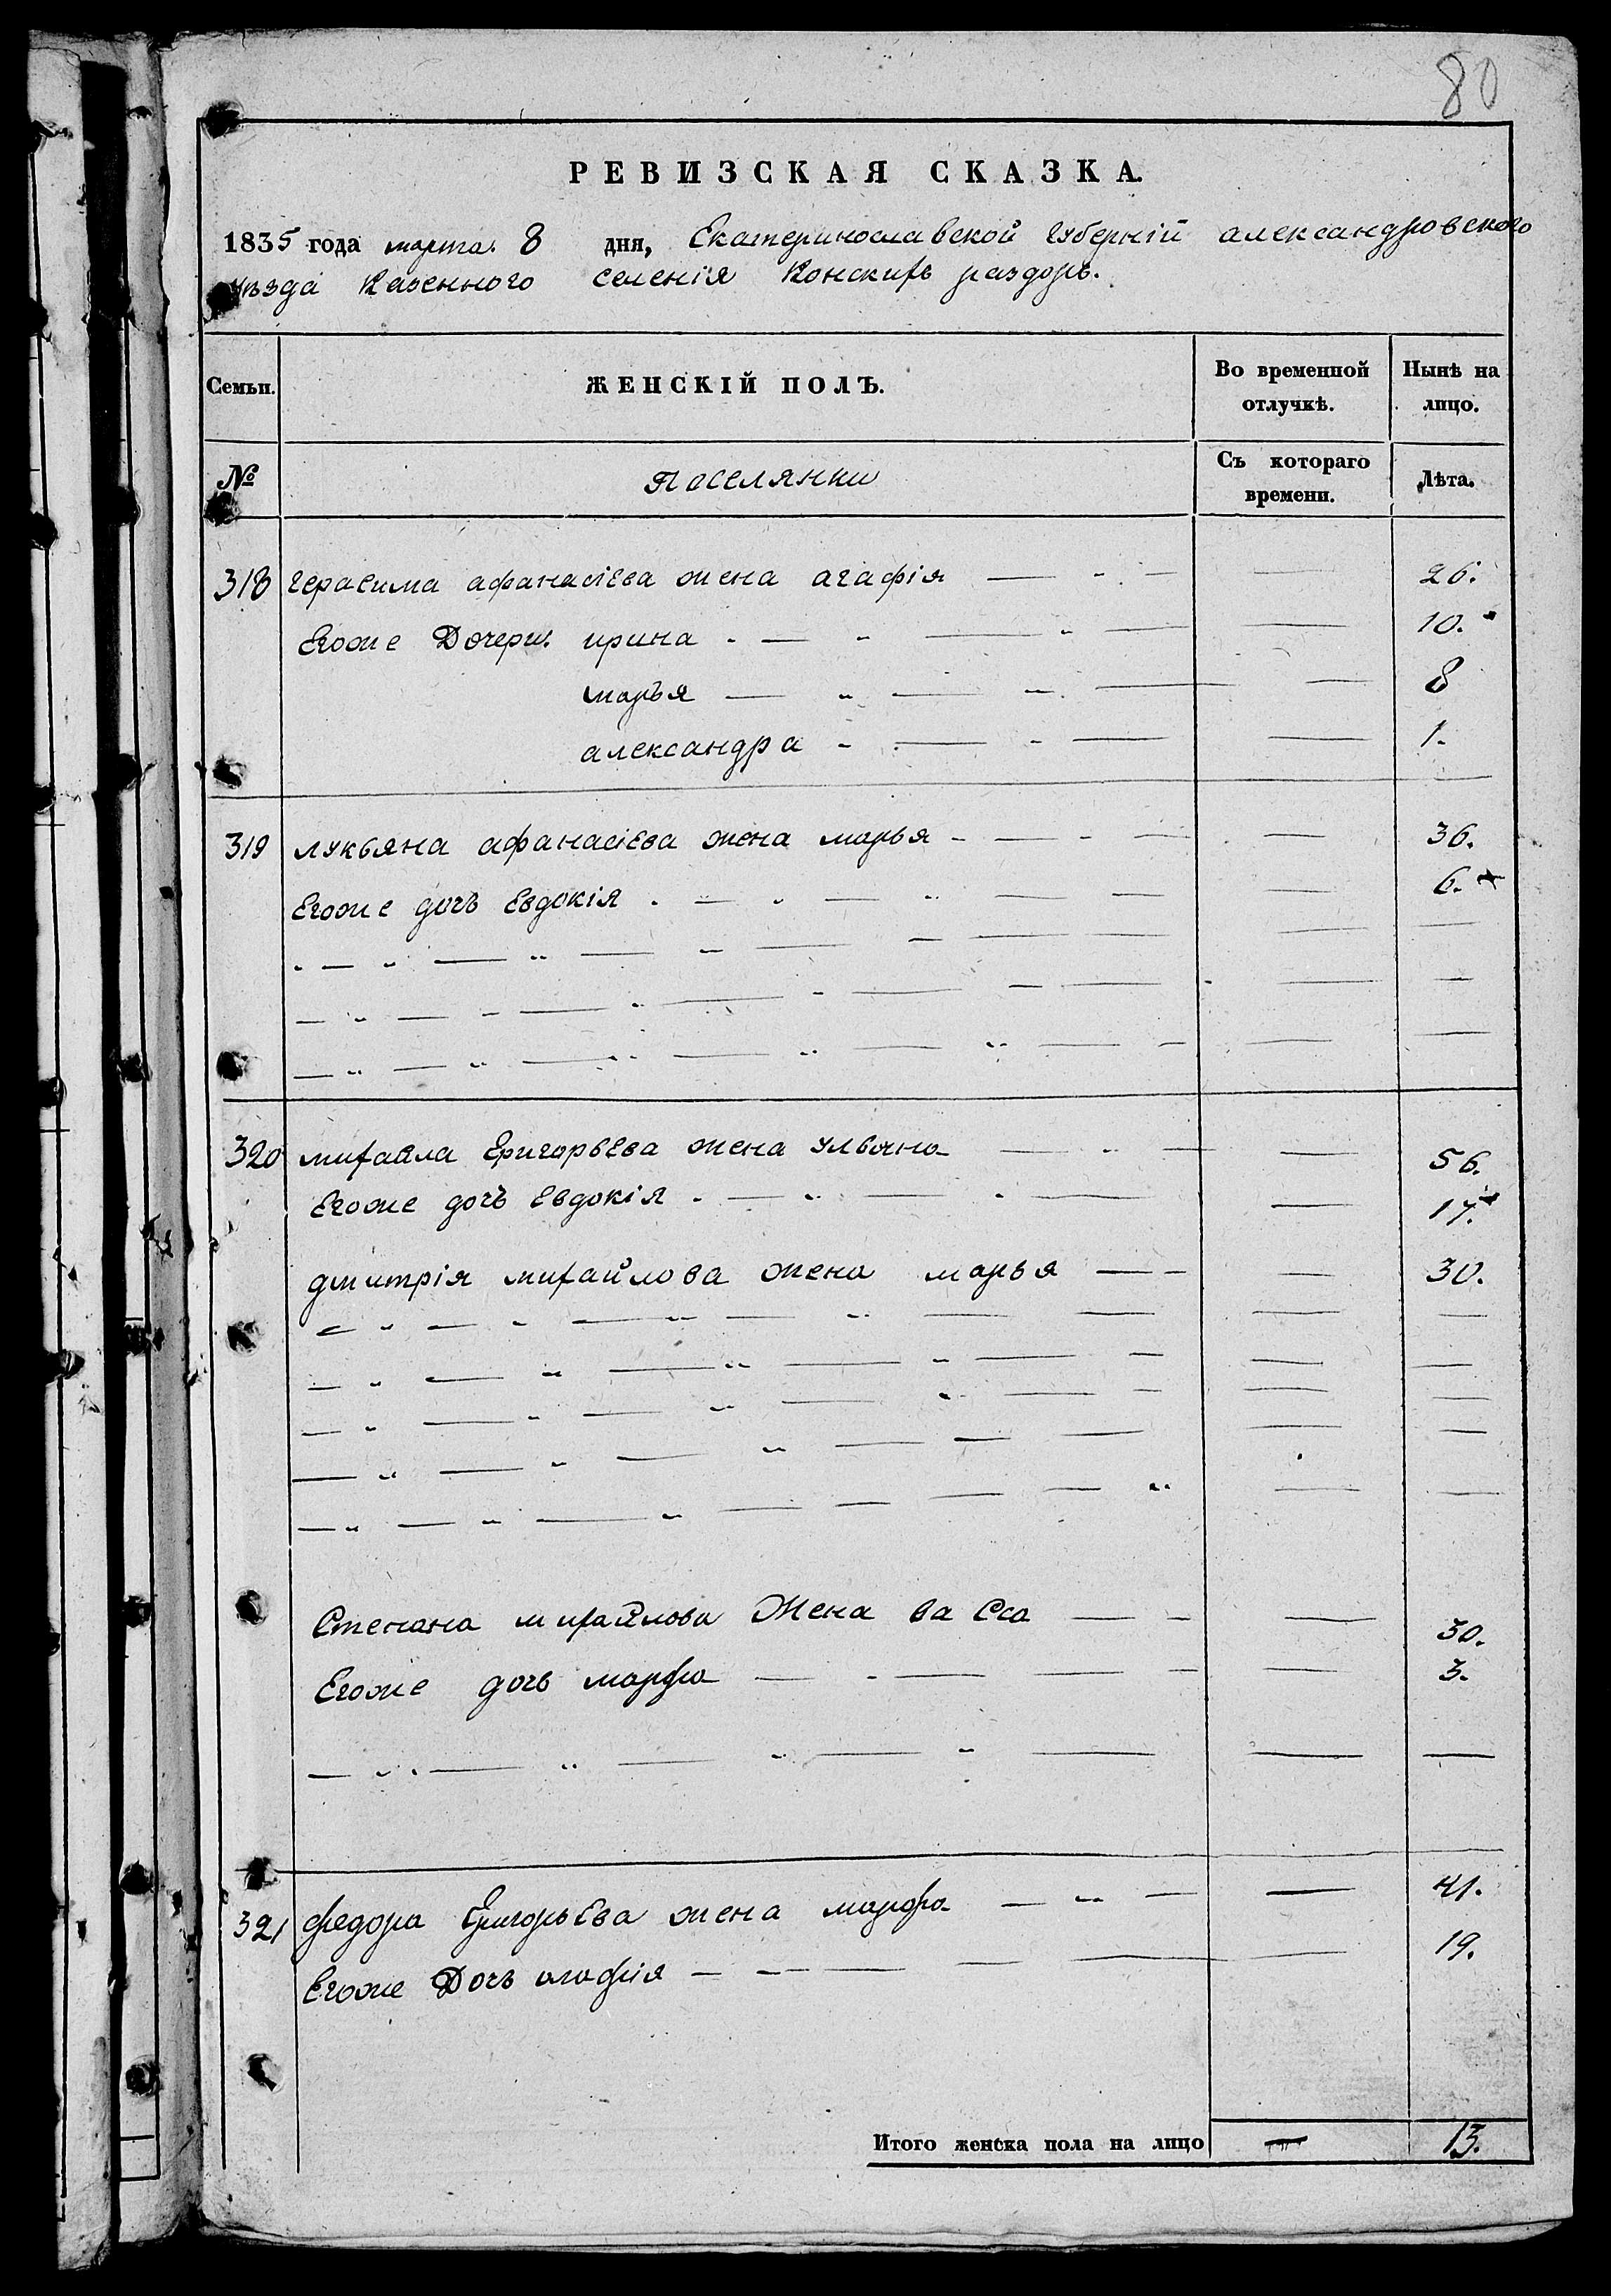 80
РЕВИЗСКАЯ СКАЗКА.
1835 года марта 8 дня, Екатеринославской губерній александровского
уѣзда Казенного селенія Конскихъ раздоръ.
Семьи. ЖЕНСКІЙ ПОЛЪ. Во временной отлучкѣ. Нынѣ на лицо.
№ Поселянки Съ котораго времени. Лѣта.
318 герасима афанасіева жена агафія 26.
Егоже Дочери. ирина 10.
марья 8
александра 1.
319 лукьяна афанасіева жена марья 36.
Егоже дочь Евдокія 6.
320 михайла Григорьева жена ульяна 56.
Егоже дочь Евдокія 17.
дмитрія михайлова жена марья 30.
Степана михайлова Жена васса 30.
Егоже дочь марфа 3.
321 федора Григорьева жена марфа 41.
Егоже Дочь агафія 19.
Итого женска пола на лицо 13.